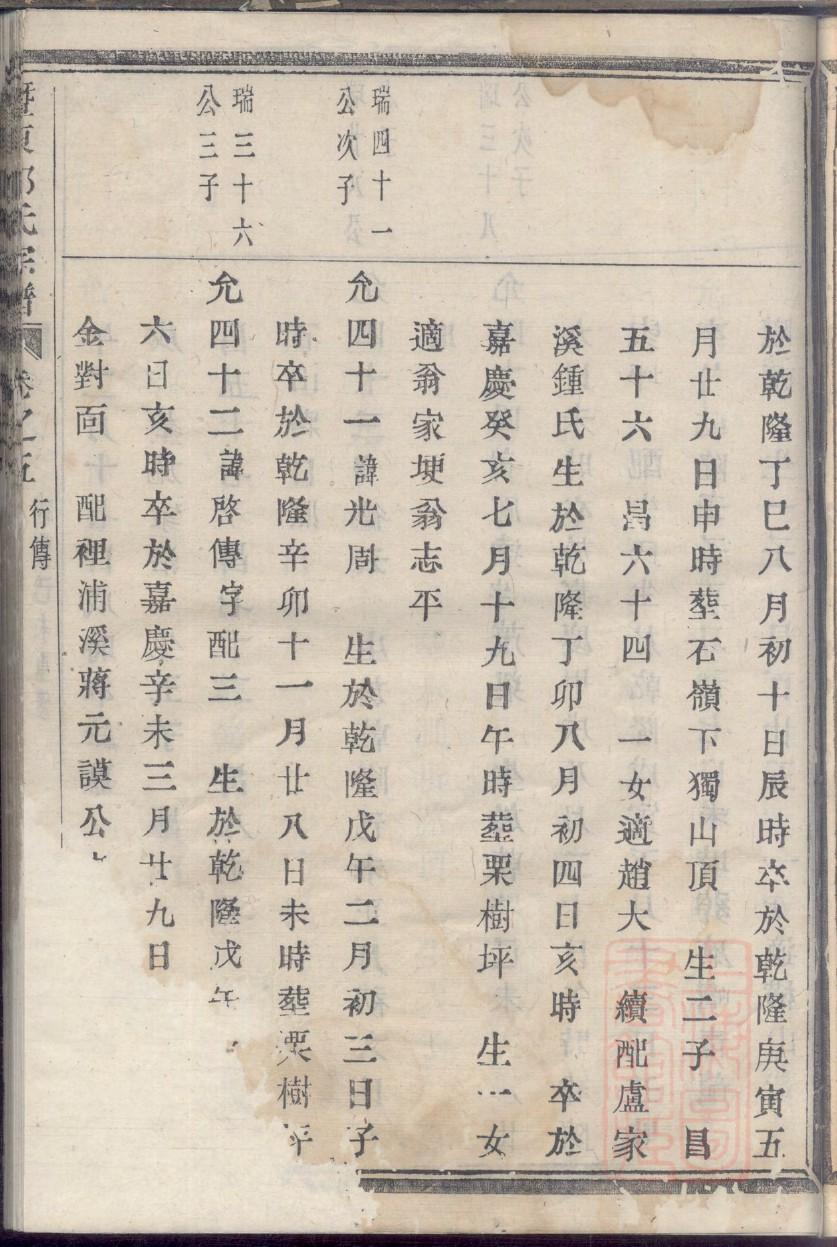 於乾隆丁巳八月初十日辰時卒於乾隆庚寅五
月廿九日申時塟石嶺下獨山頂 生二子 昌
五十六 昌六十四 一女適趙大 續配盧家
溪鍾氏生於乾隆丁卯八月初四日亥時 卒於
嘉慶癸亥七月十九日午時塟栗樹坪 生一女
適翁家埂翁志平
瑞四十一
公次子
允四十一諱光周 生於乾隆戊午二月初三日子
時卒於乾隆辛卯十一月廿八日未時塟栗樹坪
瑞三十六
公三子
允四十二諱啓傳字配三 生於乾隆戊午
六日亥時卒於嘉慶辛未三月廿九日
金對面 配裡浦溪蔣元謨公
暨東 氏宗譜 卷之五 行傳